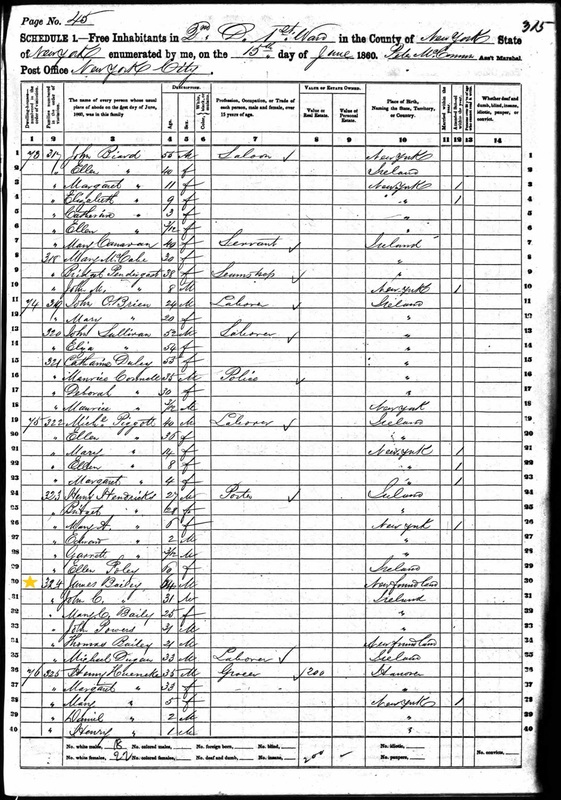 Page No. 45
325
SCHEDULE 1.—Free Inhabitants in 3rd D. 1st Ward in the County of New York State
of New York enumerated by me, on the 15th day of June 1860. Ass't Marshal.
Post Office New York City.
DESCRIPTION.
VALUE OF ESTATE OWNED.
The name of every person whose usual place of abode on the first day of June, 1860, was in this family
Age
Sex
Profession, Occupation, or Trade of each person, male and female, over 15 years of age.
Value of Real Estate.
Value of Personal Estate.
Place of Birth, Naming the State, Territory, or Country.
Whether deaf and dumb, blind, insane, idiotic, pauper, or convict.
1 2 3 4 5 6 7 8 9 10 11 12 13 14
1 73 317 John Biard 55 M Saloon New York
2 " Ellen " 40 f Ireland
3 " Margaret " 11 f New York 1
4 " Elizabeth " 9 f " 1
5 " Catherine " 3 f "
6 " Ellen " f "
7 " Mary Canavan 40 f Servant Ireland
8 318 Mary McCabe 20 f "
9 " Bridget Pendergast 38 f "
10 " John M. " 8 M New York 1
11 74 319 John O'Brien 24 M Laborer Ireland
12 " Mary " 20 f "
13 320 John Sullivan 52 M Laborer "
14 " Eliza " 54 f "
15 321 Catharine Daley 55 f "
16 " Maurice 35 M Police "
17 " Deborah " 30 f "
18 " Maurice " M New York
19 75 322 Michl Piggott 40 M Laborer Ireland
20 " Ellen " 36 f "
21 " Mary " 14 f New York 1
22 " Ellen " 8 f " 1
23 " Margaret " 4 f " 1
24 323 Henry Hendricks 27 M Porter Ireland
25 " Bridget " 28 f "
26 " Mary A. " 6 f New York 1
27 " Edward " 2 M "
28 " Garrett " M "
29 " Ellen Foley f Ireland
30 324 James Bailey 34 M Newfoundland
31 " John C. " 31 M Ireland
32 " Mary C. Bailey 25 f "
33 " John Powers 31 M "
34 " Thomas Bailey 21 M Newfoundland
35 " Michael Dugan 33 M Laborer Ireland
36 76 325 Henry 35 M Grocer 200 Hanover
37 " Margaret " 33 f "
38 " Mary " 5 f New York 1
39 " Daniel " 2 M "
40 " Henry " 1 M "
No. white males, 18 No. colored males, No. foreign born, No. blind, 200 No. idiotic, No. convicts,
No. white females, 22 No. colored females, No. deaf and dumb, No. insane, No. paupers,